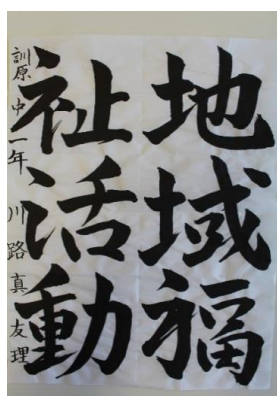 地域福
祉活動
訓原中一年 川路真友理